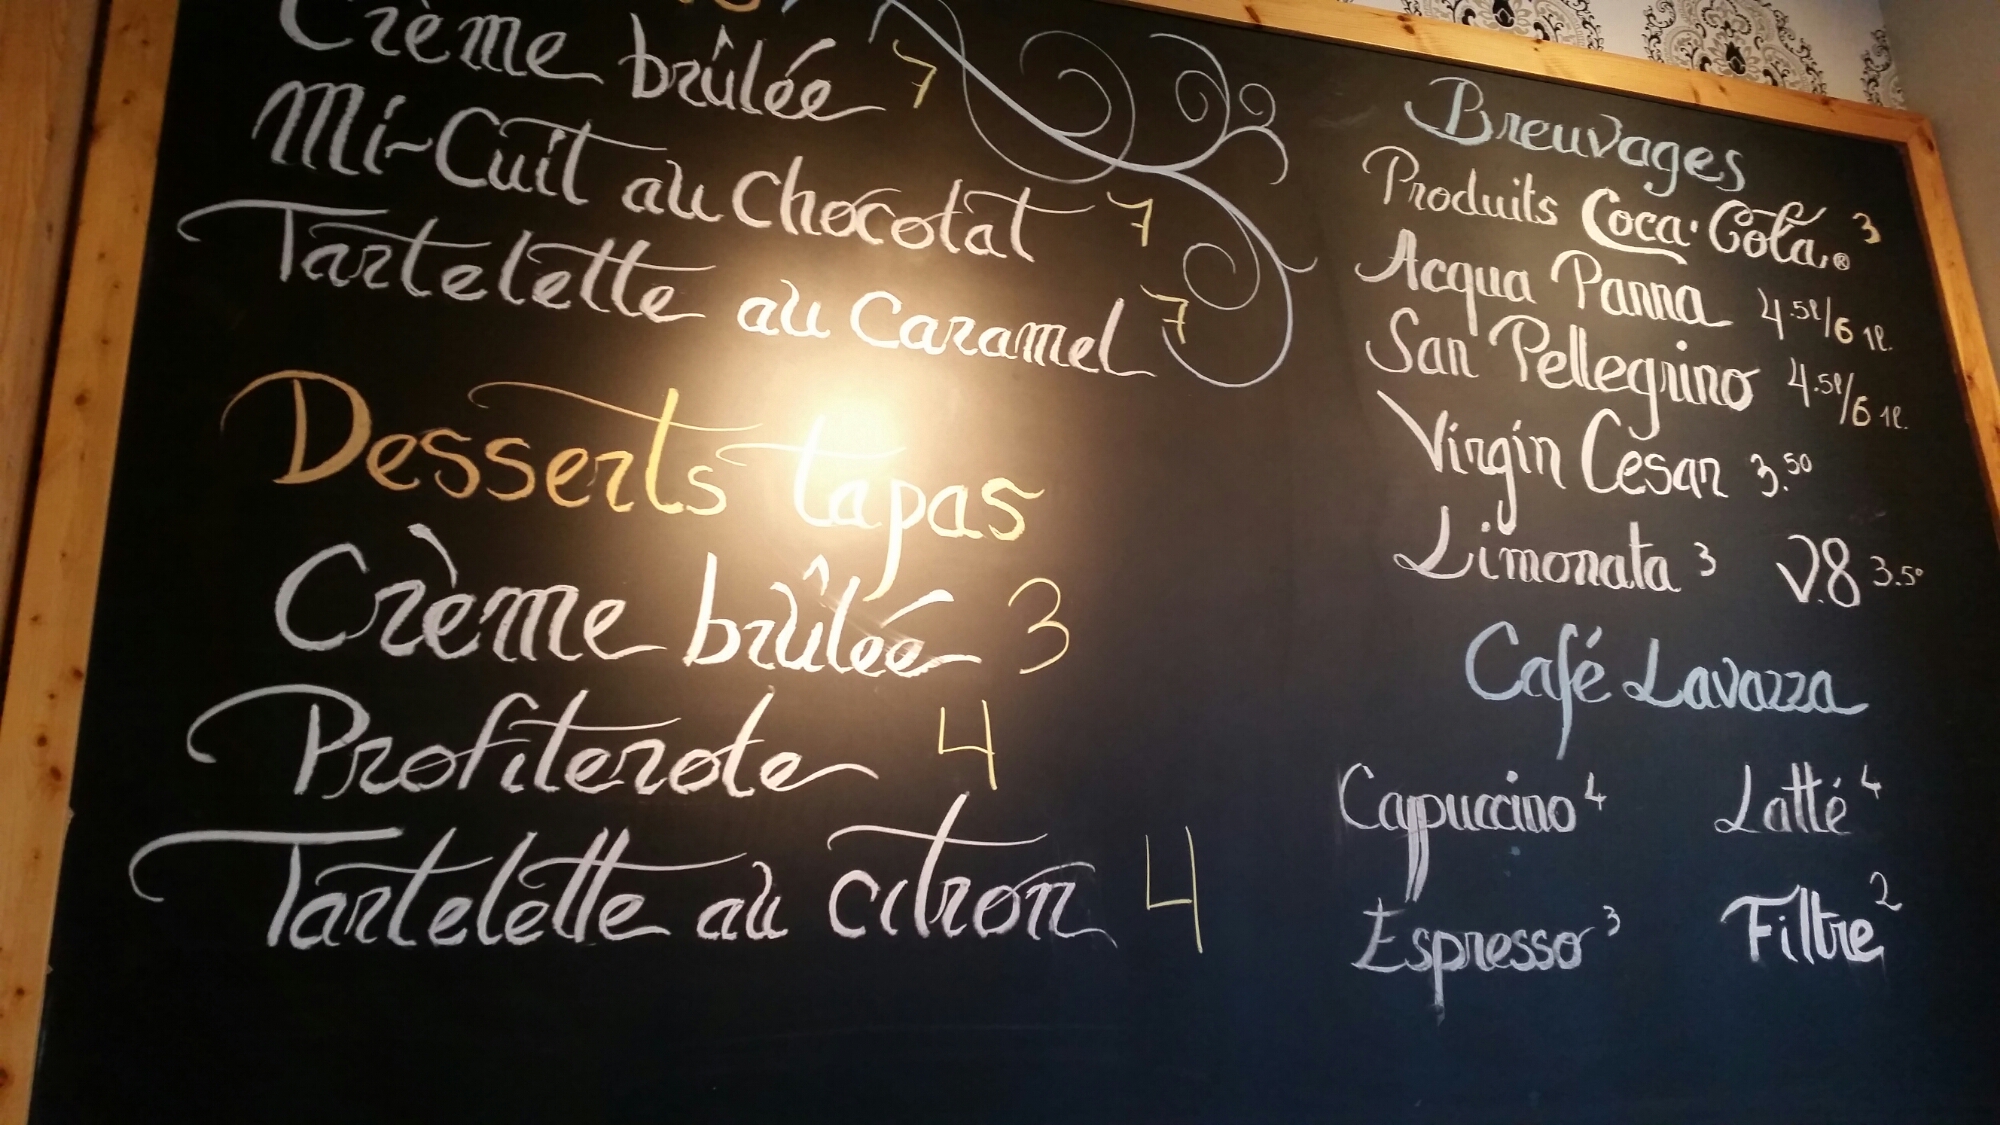 Crème brûlée 7
Mi-Cuit au chocolat 7
Tartelette au Caramel 7
Desserts tapas
Crème brûlée 3
Profiterole 4
Tartelette au citron 4
Breuvages
Produits Coca-Cola® 3
Acqua Panna 4 .5l/6 1l.
San Pellegrino 4 .5l/6 1l.
Virgin Cesar 3.50
Limonata 3 V.8 3.50
Café Lavazza
Cappuccino 4 Latté 4
Espresso 3 Filtre 2